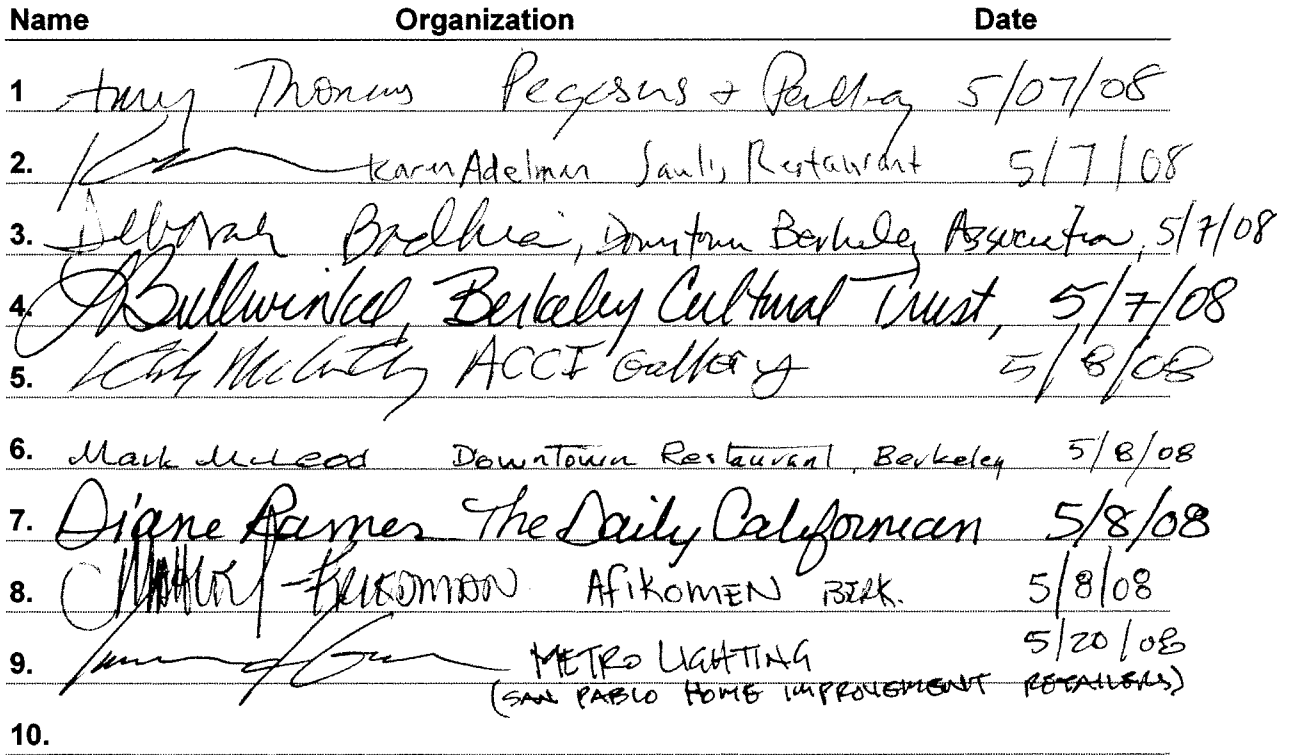 Name Organization Date
1 Amy Thomas Pegasus + Pendragon 5/07/08
2. Karen Adelman Saul's Restaurant 5/7/08
3. Deborah Badhia, Downtown Berkeley Association, 5/7/08
4. Bullwinkel, Berkeley Cultural Trust, 5/7/08
5. McCarthy ACCI Gallery 5/8/08
6. Mark McLeod Downtown Restaurant, Berkeley 5/8/08
7. Diane Rames The Daily Californian 5/8/08
8. Afikomen BERK. 5/8/08
9. METRO LIGHTING 5/20/08
(SAN PABLO HOME IMPROVEMENT RETAILERS)
10.